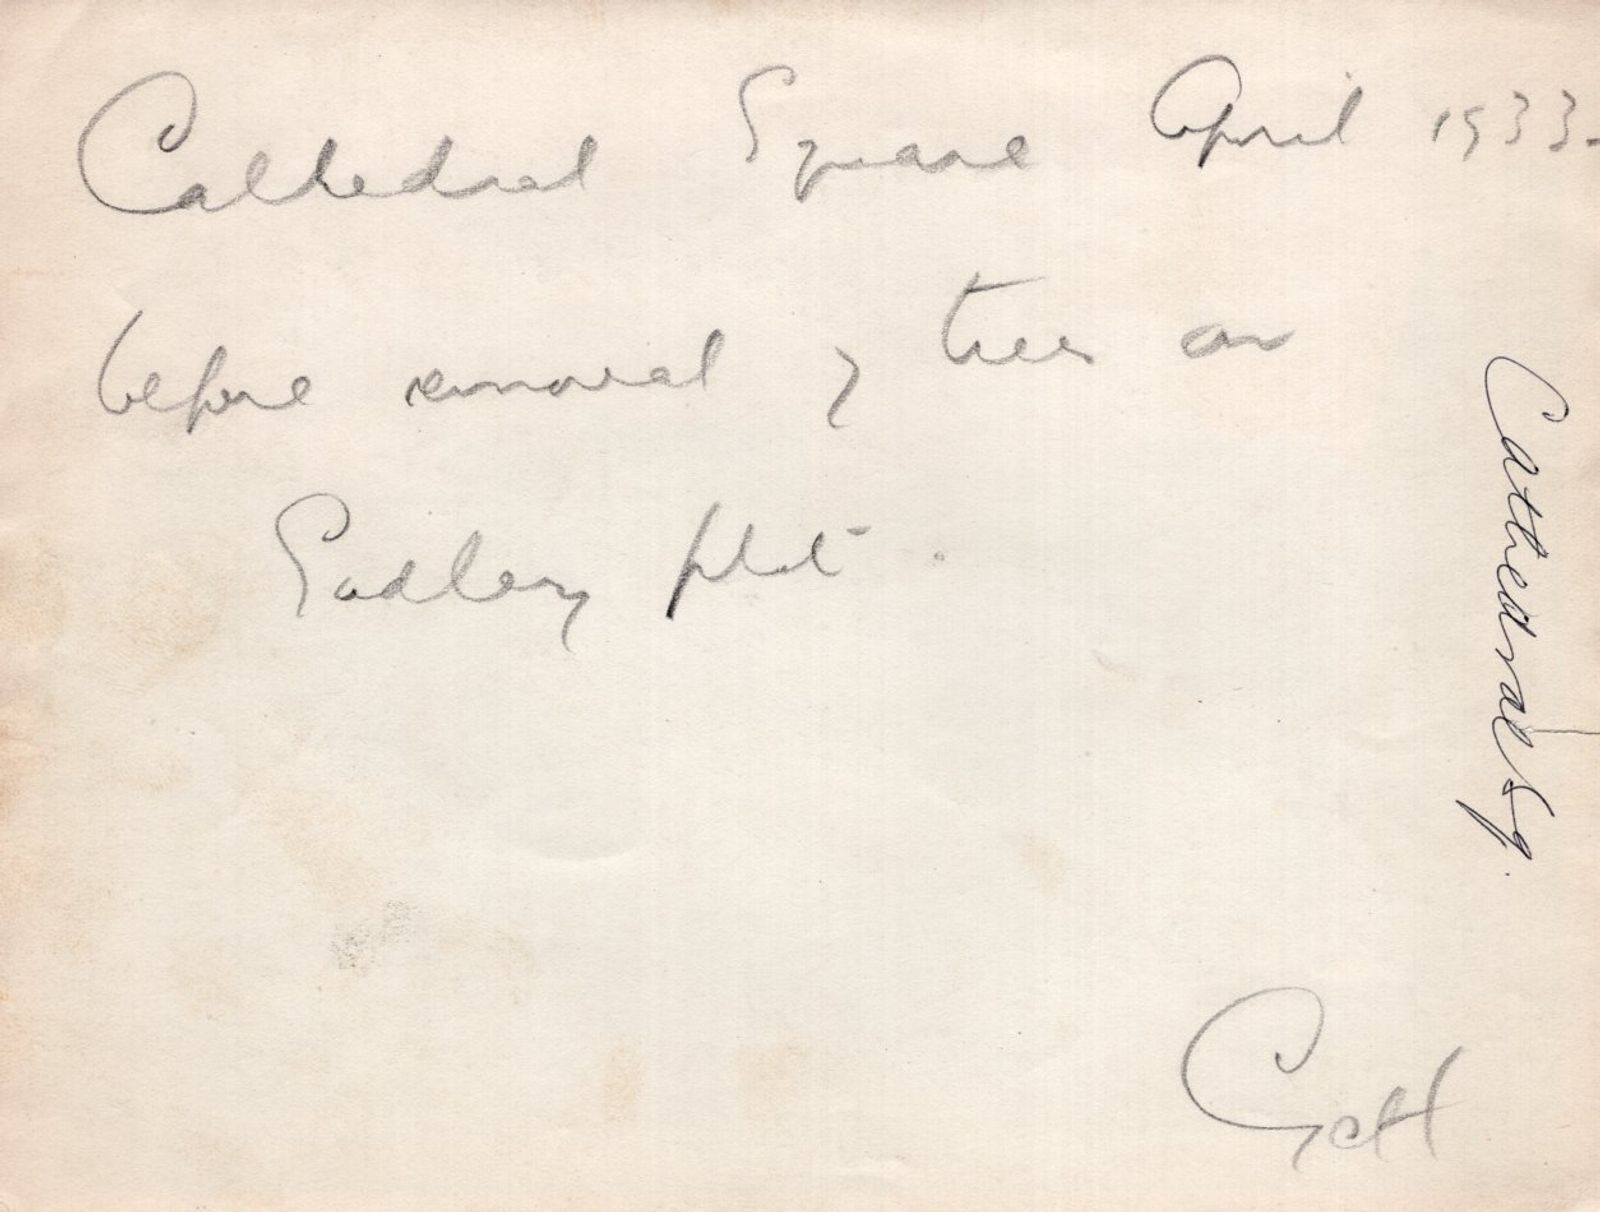 Cathedral Square April 1933-
before removal of trees on
Godley plot.
Cathedral Sq.